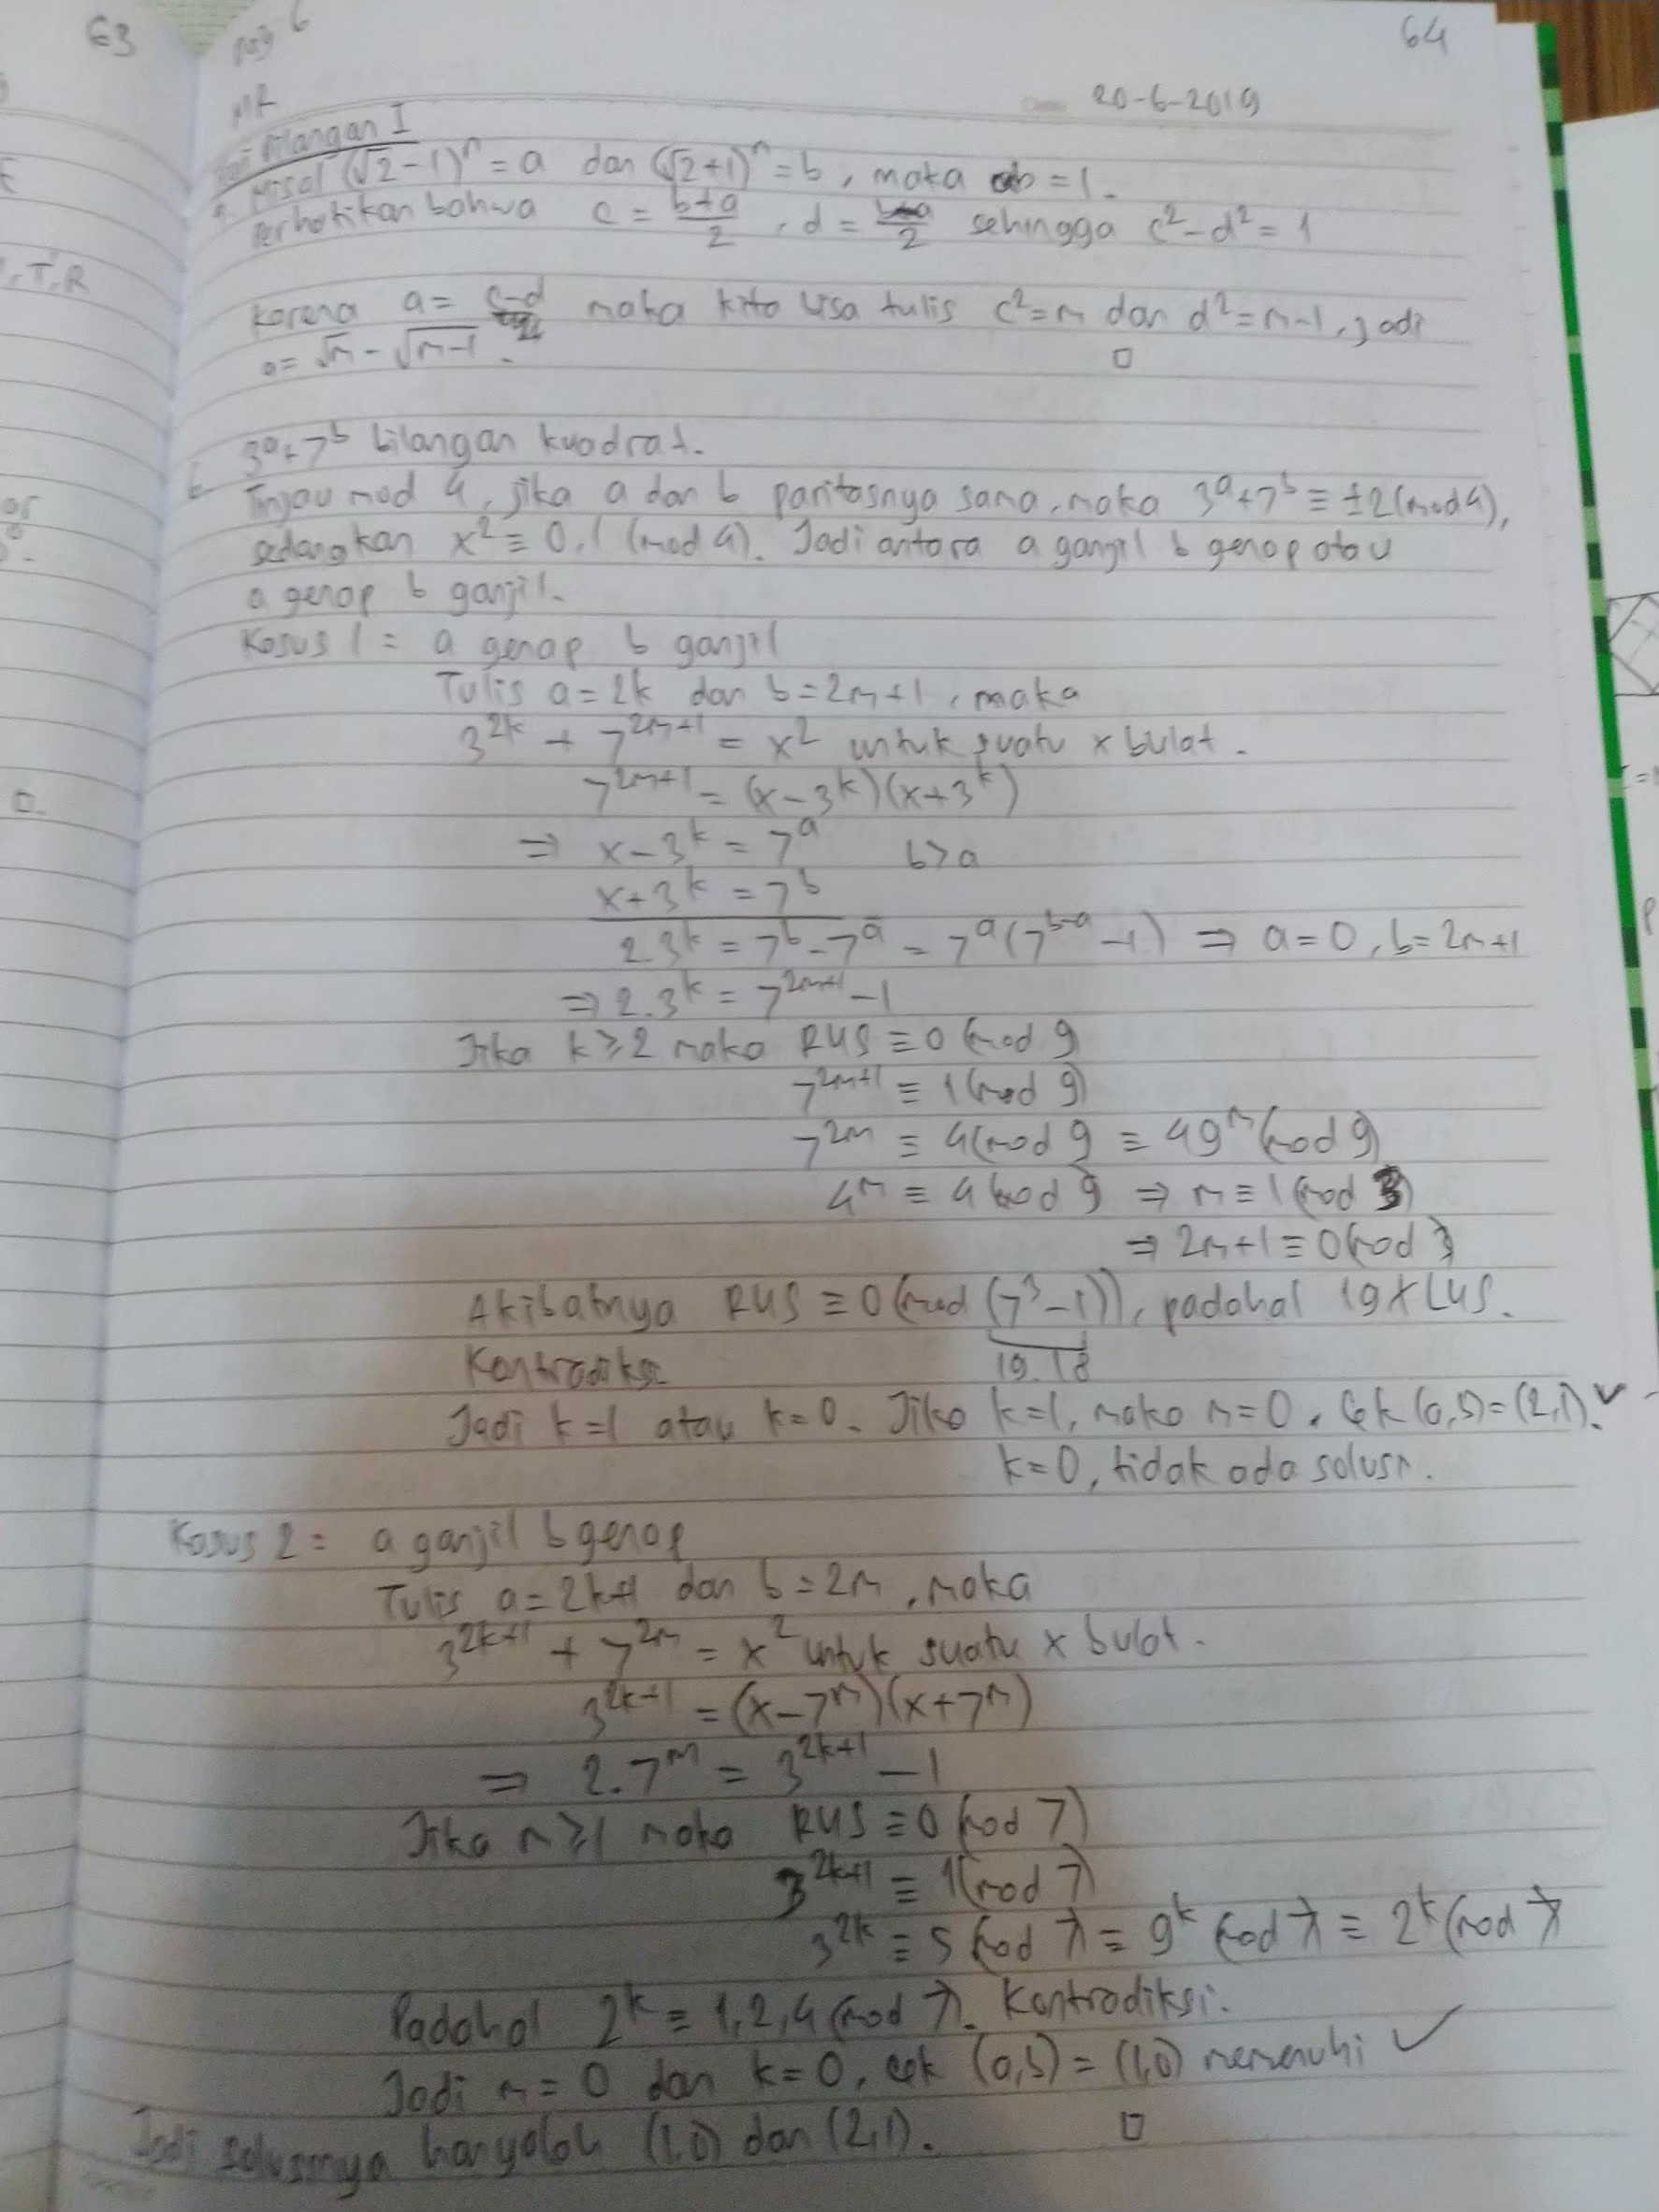 63
Pag 6
64
MR
20-6-2019
Bilangan I
a. Misal (√2-1)^n = a dan (√2+1)^n = b, maka ab = 1.
Perhatikan bahwa c = (b+a)/2, d = (b-a)/2 sehingga c² - d² = 1
Karena a = c-d maka kita bisa tulis c² = m dan d² = m-1, jadi
a = √m - √(m-1). □
b. 3^a + 7^b bilangan kuadrat.
Tinjau mod 4, jika a dan b paritasnya sama, maka 3^a + 7^b ≡ ±2 (mod 4),
sedangkan x² ≡ 0,1 (mod 4). Jadi antara a ganjil b genap atau
a genap b ganjil.
Kasus 1 = a genap b ganjil
Tulis a = 2k dan b = 2m+1, maka
3^{2k} + 7^{2m+1} = x² untuk suatu x bulat.
7^{2m+1} = (x-3^k)(x+3^k)
⇒ x - 3^k = 7^a b>a
x + 3^k = 7^b
2.3^k = 7^b - 7^a = 7^a(7^{b-a} - 1) ⇒ a = 0, b = 2m+1
⇒ 2.3^k = 7^{2m+1} - 1
Jika k ≥ 2 maka RUS ≡ 0 (mod 9)
7^{2m+1} ≡ 1 (mod 9)
7^{2m} ≡ 4 (mod 9) ≡ 49^m (mod 9)
4^m ≡ 4 (mod 9) ⇒ m ≡ 1 (mod 3)
⇒ 2m+1 ≡ 0 (mod 3)
Akibatnya RUS ≡ 0 (mod (7³-1)), padahal 19 ∤ LUS.
Kontradiksi 19.18
Jadi k=1 atau k=0. Jika k=1, maka m=0. Cek (a,b) = (2,1). ✓
k=0, tidak ada solusi.
Kasus 2 = a ganjil b genap
Tulis a = 2k+1 dan b = 2m, maka
3^{2k+1} + 7^{2m} = x² untuk suatu x bulat.
3^{2k+1} = (x-7^m)(x+7^m)
⇒ 2.7^m = 3^{2k+1} - 1
Jika m ≥ 1 maka RUS ≡ 0 (mod 7)
3^{2k+1} ≡ 1 (mod 7)
3^{2k} ≡ 5 (mod 7) ≡ 9^k (mod 7) ≡ 2^k (mod 7)
Padahal 2^k ≡ 1,2,4 (mod 7). Kontradiksi.
Jadi m = 0 dan k = 0, cek (a,b) = (1,0) memenuhi ✓
Jadi solusinya hanyalah (1,0) dan (2,1). □